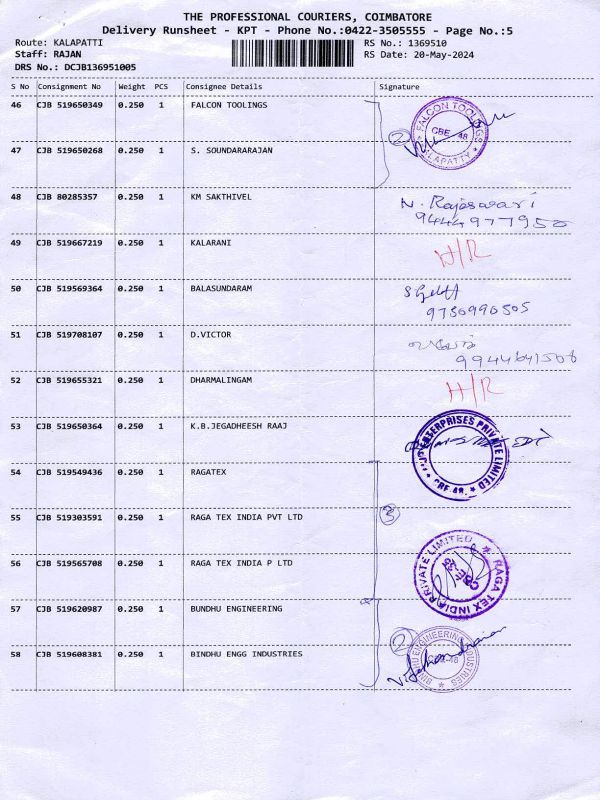 THE PROFESSIONAL COURIERS, COIMBATORE
Delivery Runsheet - KPT - Phone No.:0422-3505555 - Page No.:5
Route: KALAPATTI RS No.: 1369510
Staff: RAJAN RS Date: 20-May-2024
DRS No.: DCJB136951005
S No Consignment No Weight PCS Consignee Details Signature
46 CJB 519650349 0.250 1 FALCON TOOLINGS
FALCON TOOLINGS CBE 48
2
47 CJB 519650268 0.250 1 S. SOUNDARARAJAN
48 CJB 80285357 0.250 1 KM SAKTHIVEL N. Rajeswari
9444977950
49 CJB 519667219 0.250 1 KALARANI H/R
50 CJB 519569364 0.250 1 BALASUNDARAM
9750990505
51 CJB 519708107 0.250 1 D.VICTOR
9944641508
52 CJB 519655321 0.250 1 DHARMALINGAM H/R
53 CJB 519650364 0.250 1 K.B.JEGADHEESH RAAJ
ENTERPRISES PRIVATE LIMITED
54 CJB 519549436 0.250 1 RAGATEX
55 CJB 519303591 0.250 1 RAGA TEX INDIA PVT LTD 3
56 CJB 519565708 0.250 1 RAGA TEX INDIA P LTD
RAGA TEX INDIA PRIVATE LIMITED
57 CJB 519620987 0.250 1 BUNDHU ENGINEERING
58 CJB 519608381 0.250 1 BINDHU ENGG INDUSTRIES
2
BINDHU ENGINEERING INDUSTRIES